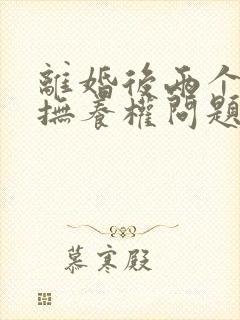 離婚後兩个
撫養權問題
慕寒殿